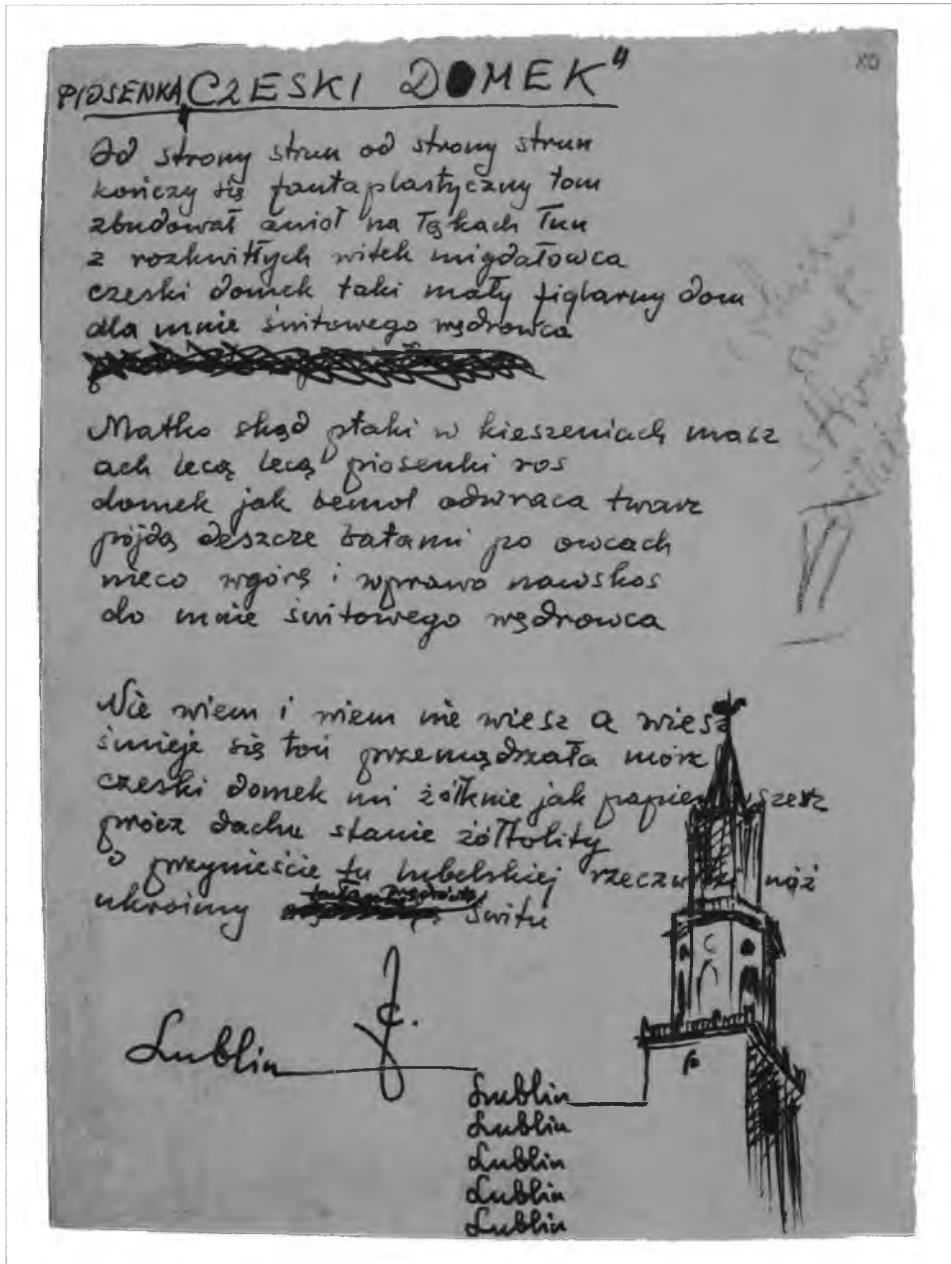 PIOSENKA „CZESKI DOMEK"
XO
Od strony strun od strony strun
kończy się fantaplastyczny tom
zbudował anioł na łąkach łun
z rozkwitłych witek migdałowca
czeski domek taki mały figlarny dom
dla mnie świtowego wędrowca
Matko skąd ptaki w kieszeniach masz
ach lecą lecą piosenki ros
domek jak bemol odwraca twarz
pójdą deszcze batami po owcach
nieco wgórę i wprawo nawskos
do mnie świtowego wędrowca
Nie wiem i wiem nie wiesz a wiesz
śmieje się toń przemądrzała mórz
czeski domek mi żółknie jak papier wszerz
prócz dachu stanie żółtolity
o przynieście tu lubelskiej rzeczułki nóż
ukroimy świtu
Lublin
Lublin
Lublin
Lublin
Lublin
Lublin